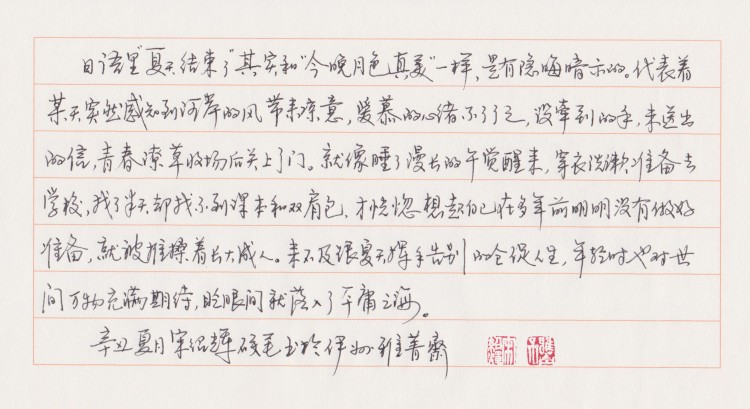 日语里"夏天结束了"其实和"今晚月色真美"一样,是有隐晦暗示的。代表着
某天突然感知到河岸的风带来凉意,爱慕的心绪不了了之,没牵到的手,未送出
的信,青春潦草收场后关上了门。就像睡了漫长的午觉醒来,穿衣洗漱准备去
学校,找了半天却找不到课本和双肩包,才恍惚想起自己在多年前明明没有做好
准备,就被推搡着长大成人。来不及跟夏天挥手告别的仓促人生,年轻时也对世
间万物充满期待,眨眼间就落入了平庸之海。
辛丑夏月宋绍辉硬毛书于伊州雅菁斋